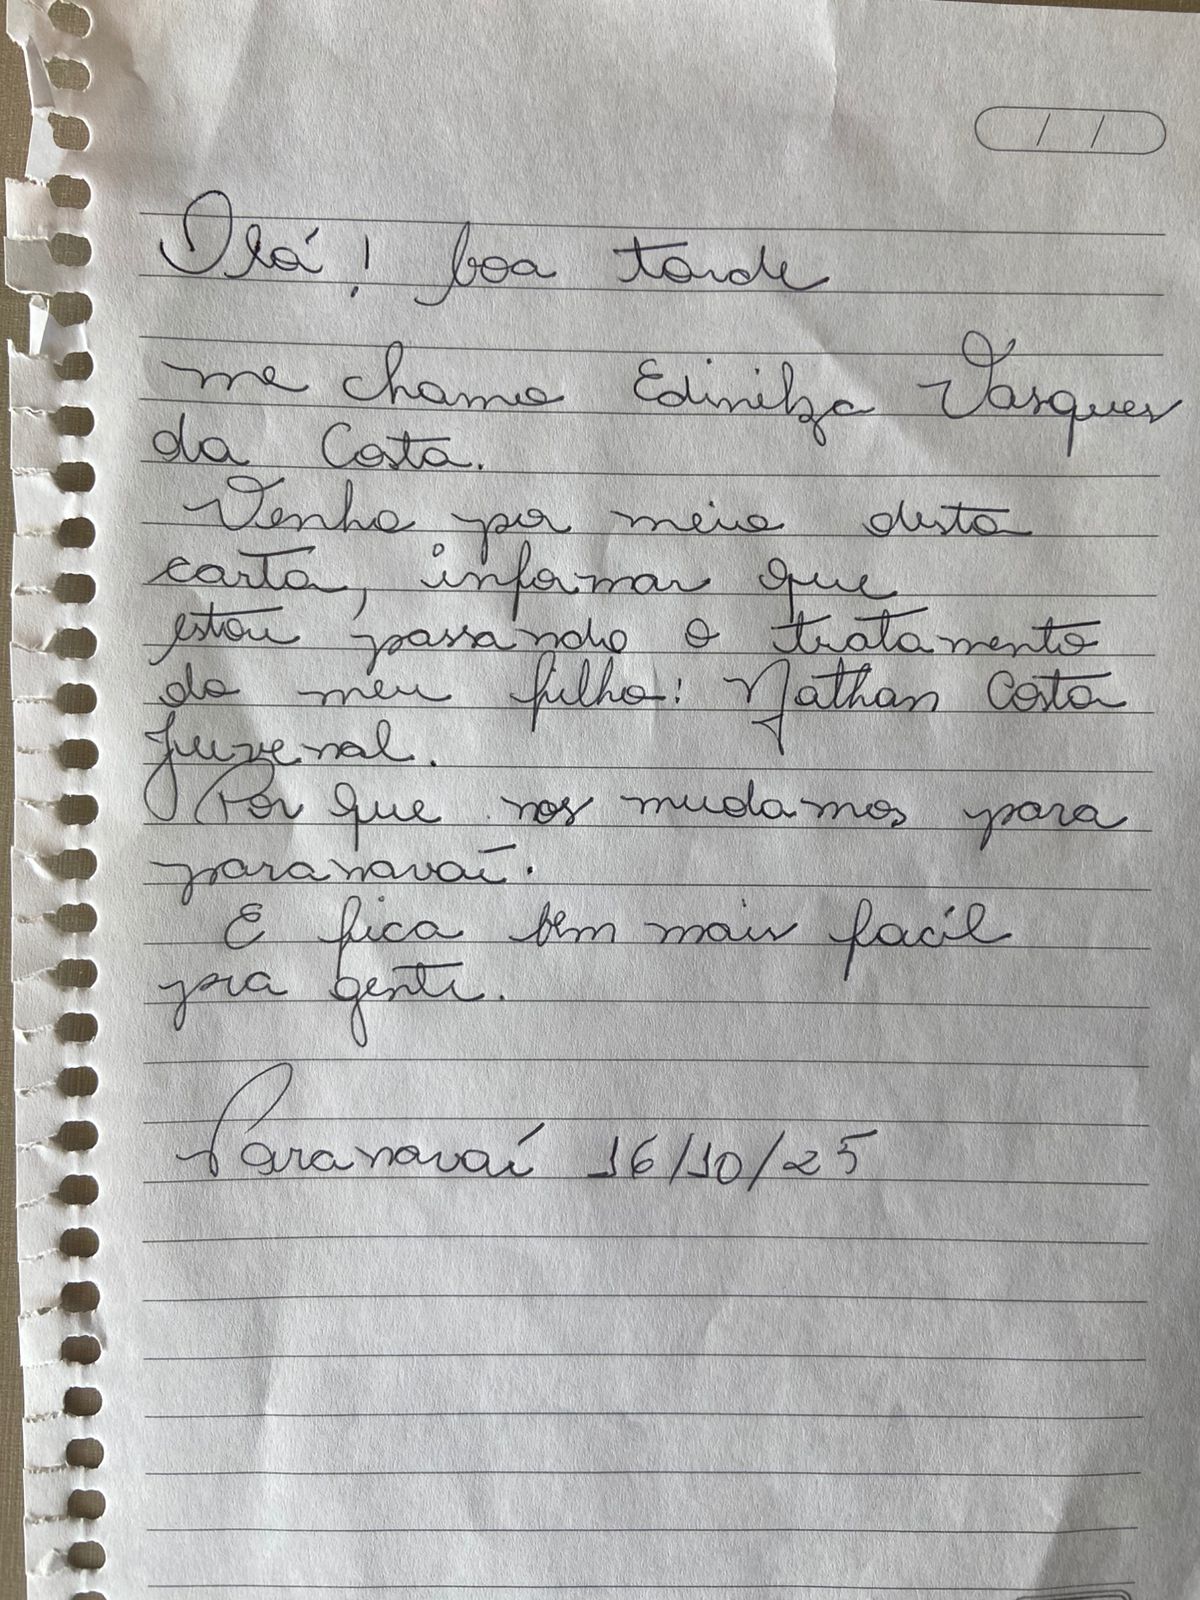 Olá! boa tarde
me chamo Edinilza Vasques
da Costa.
Venho por meio desta
carta, informar que
estou passando o tratamento
do meu filho: Nathan Costa
Juvenal.
Por que nos mudamos para
paranavaí.
E fica bem mais facíl
pra gente.
Paranavaí 16/10/25